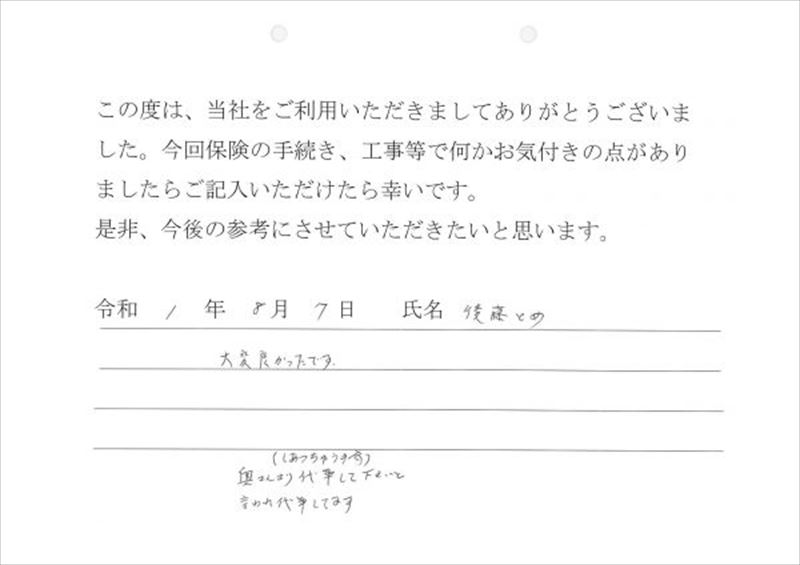 この度は、当社をご利用いただきましてありがとうございま
した。今回保険の手続き、工事等で何かお気付きの点があり
ましたらご記入いただけたら幸いです。
是非、今後の参考にさせていただきたいと思います。
令和 1 年 8月 7日 氏名 後藤とめ
大変良かったです.
奥さんより代筆して下さいと
言われ代筆してます